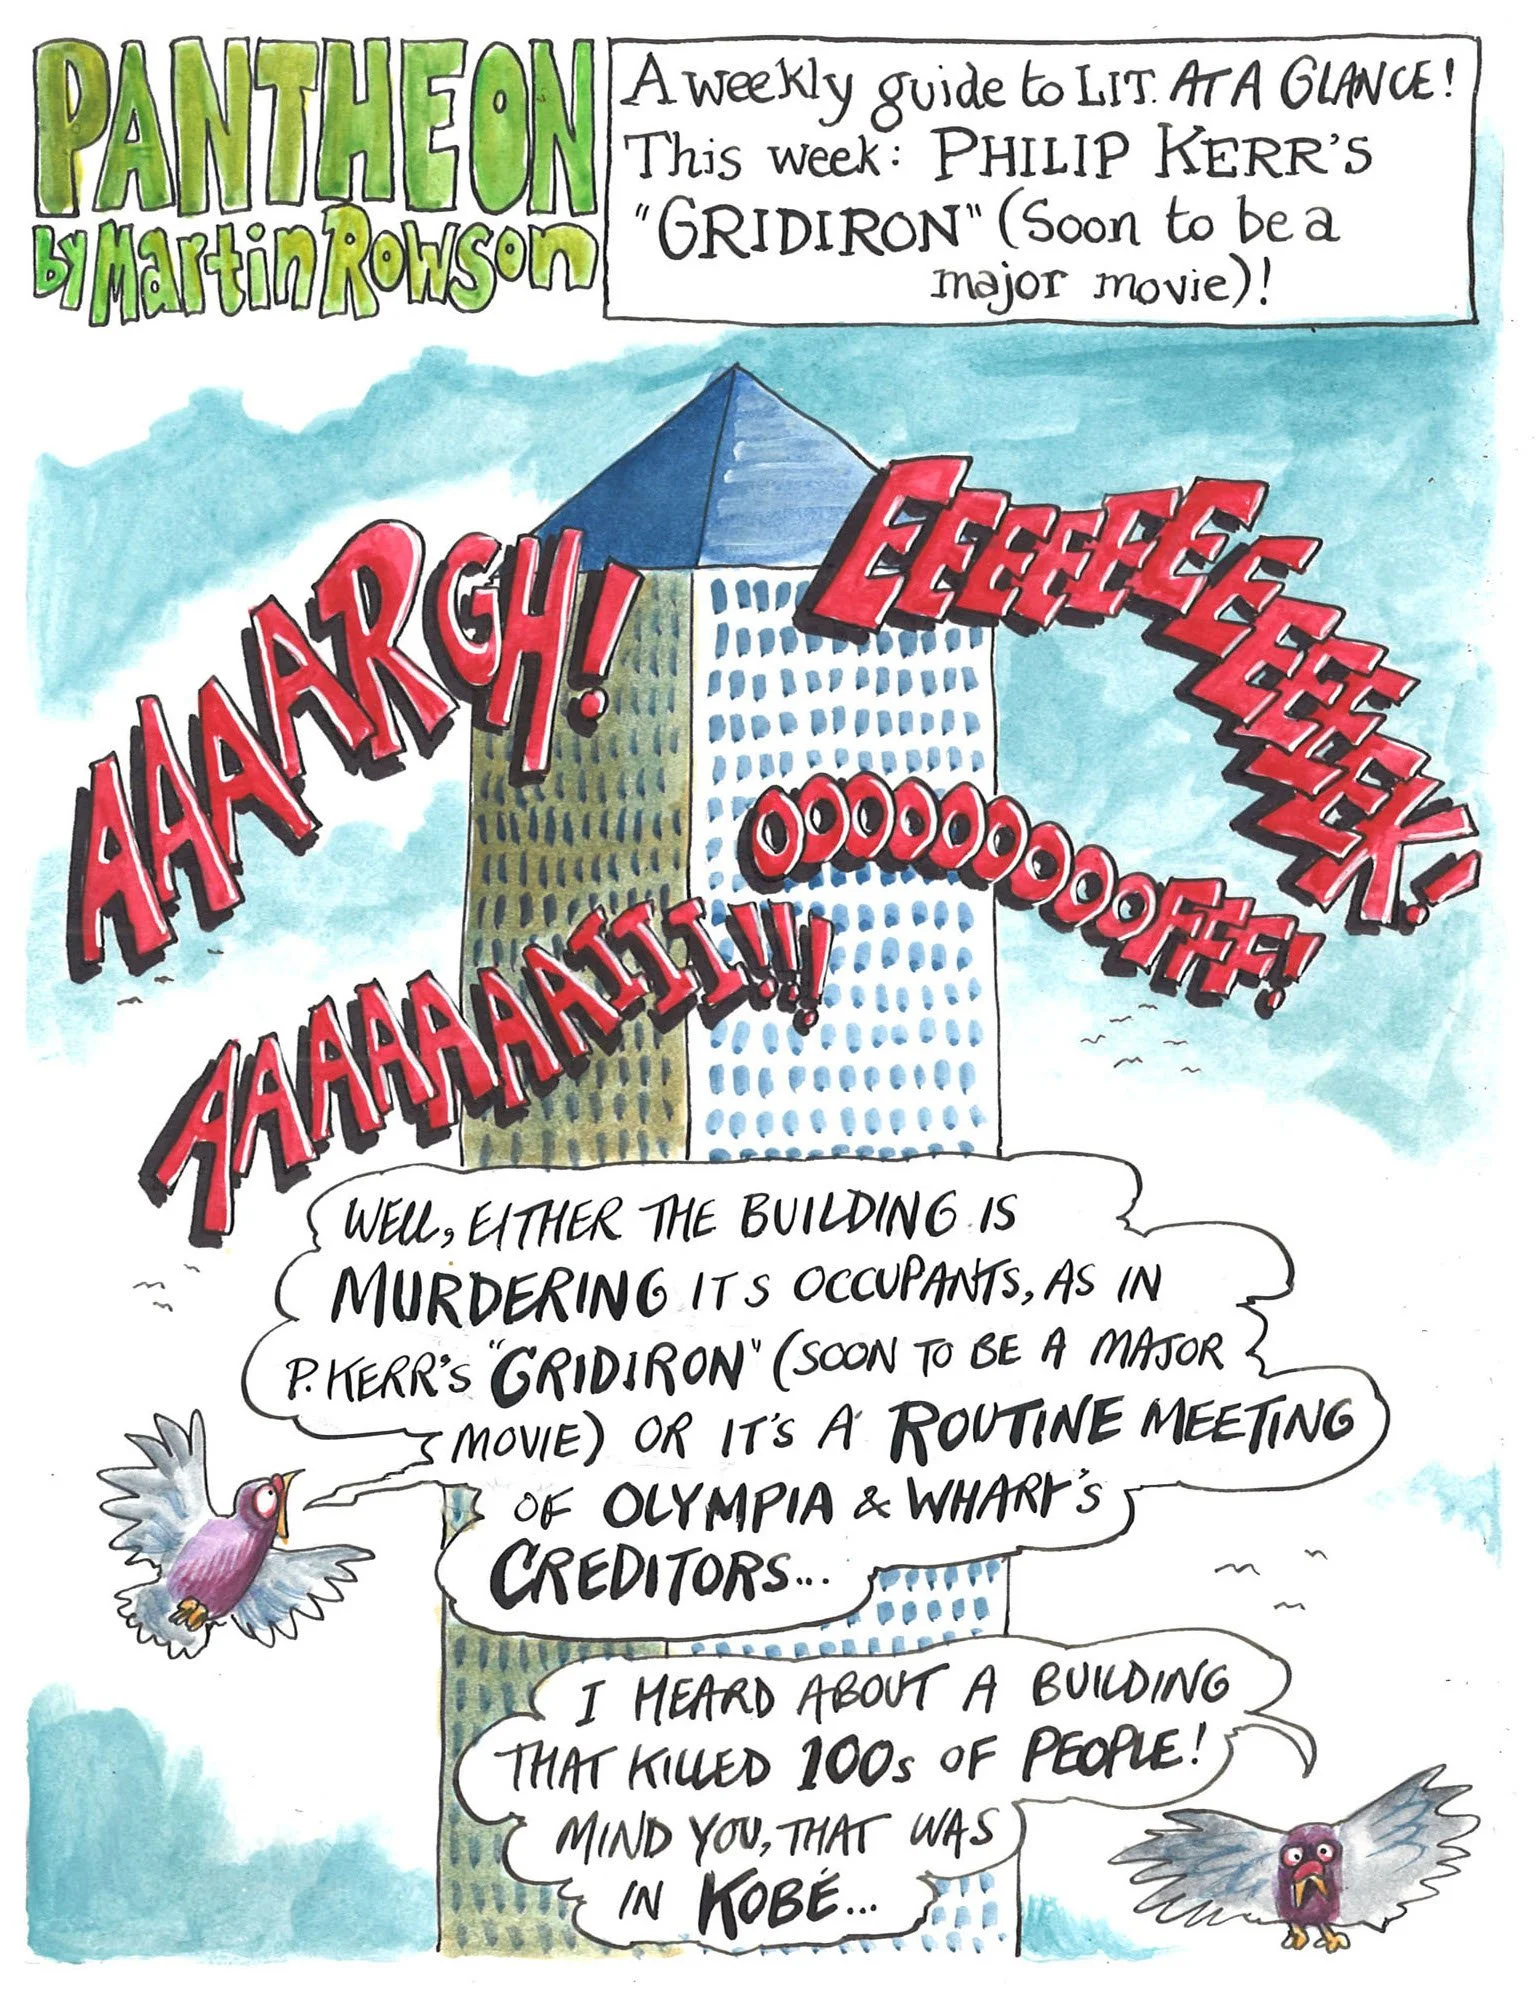 PANTHEON
by Martin Rowson
A weekly guide to LIT. AT A GLANCE!
This week: PHILIP KERR'S
"GRIDIRON" (Soon to be a
major movie)!
AAAARGH!
EEEEEEEEEEEEEK!
OOOOOOOOOOFFF!
AAAAAAAAIIII!!!
WELL, EITHER THE BUILDING IS
MURDERING ITS OCCUPANTS, AS IN
P. KERR'S "GRIDIRON" (SOON TO BE A MAJOR
MOVIE) OR IT'S A ROUTINE MEETING
OF OLYMPIA & WHARF'S
CREDITORS...
I HEARD ABOUT A BUILDING
THAT KILLED 100s OF PEOPLE!
MIND YOU, THAT WAS
IN KOBÉ...